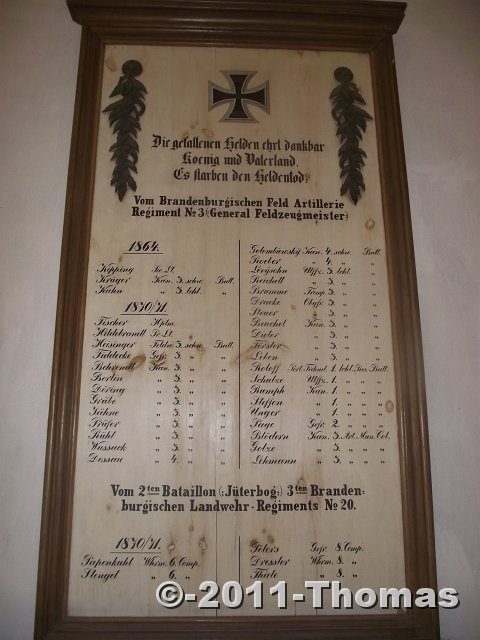 Die gefallenen Helden ehrt dankbar
Koenig und Vaterland.
Es starben den Heldentod:
Vom Brandenburgischen Feld Artillerie
Regiment No 3 (General Feldzeugmeister)
1864.
Kipping Sec. Lt.
Krüger Kan. 3. schw. Batt.
Kühn " 3. leht. "
1870/71.
Fischer Hptm.
Hildebrandt Pr. Lt.
Häsinger Feldw. 3. schw. Batt.
Lüdecke Gefr. 3. " "
Behrendt Kan. 3. " "
Berlin " 3. " "
Döring " 3. " "
Gräbe " 3. " "
Kühne " 3. " "
Präfer " 3. " "
Rühl " 3. " "
Wassack " 3. " "
Dessau " 4. " "
Golembiewsky Kan. 4. schw. Batt.
Roeber " 4. " "
Levysohn Utffz. 3. leht. "
Reichelt " 3. " "
Brumme Tromp. 3. " "
Dracke Obgfr. 3. " "
Steuer " 3. " "
Beuchel Kan. 3. " "
Dieler " 3. " "
Förster " 3. " "
Leben " 3. " "
Roloff Port. Fähnd. 1. leht. Res. Batt.
Schulze Utffz. 1. " "
Rumph Kan. 1. " "
Steffen " 1. " "
Unger " 1. " "
Puge Gefr. 2. " "
Blödorn Kan. 3. Art. Mun. Col.
Golze " 3. " " "
Lehmann " 3. " " "
Vom 2ten Bataillon (Jüterbog) 3ten Branden=
burgischen Landwehr-Regiments No 20.
1870/71.
Papenkuhl Whrm. 6. Comp.
Stengel " 6. "
Peters Gefr. 8. Comp.
Dressler Whrm. 8. "
Thiele " 8. "
©-2011-Thomas